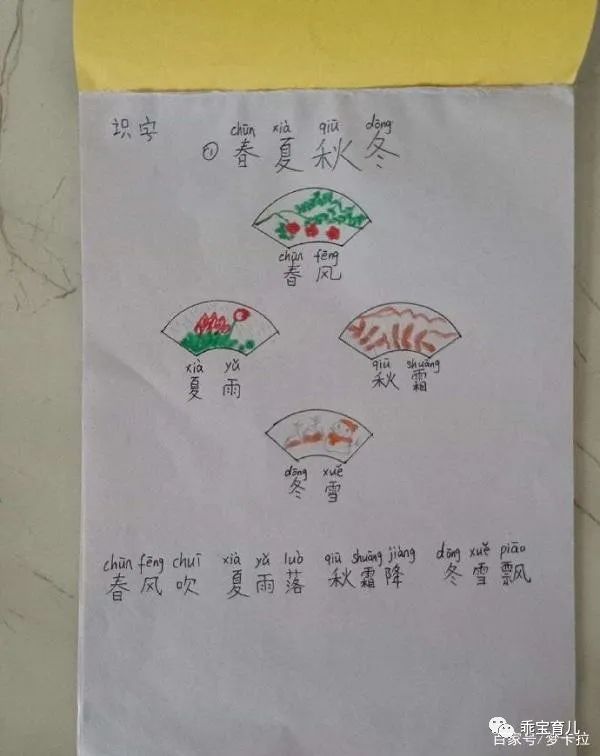 chūn xià qiū dōng
识字 ① 春夏秋冬
chūn fēng
春风
xià yǔ qiū shuāng
夏雨 秋霜
dōng xuě
冬雪
chūn fēng chuī xià yǔ luò qiū shuāng jiàng dōng xuě piāo
春风吹 夏雨落 秋霜降 冬雪飘
乖宝育儿
百家号/梦卡拉